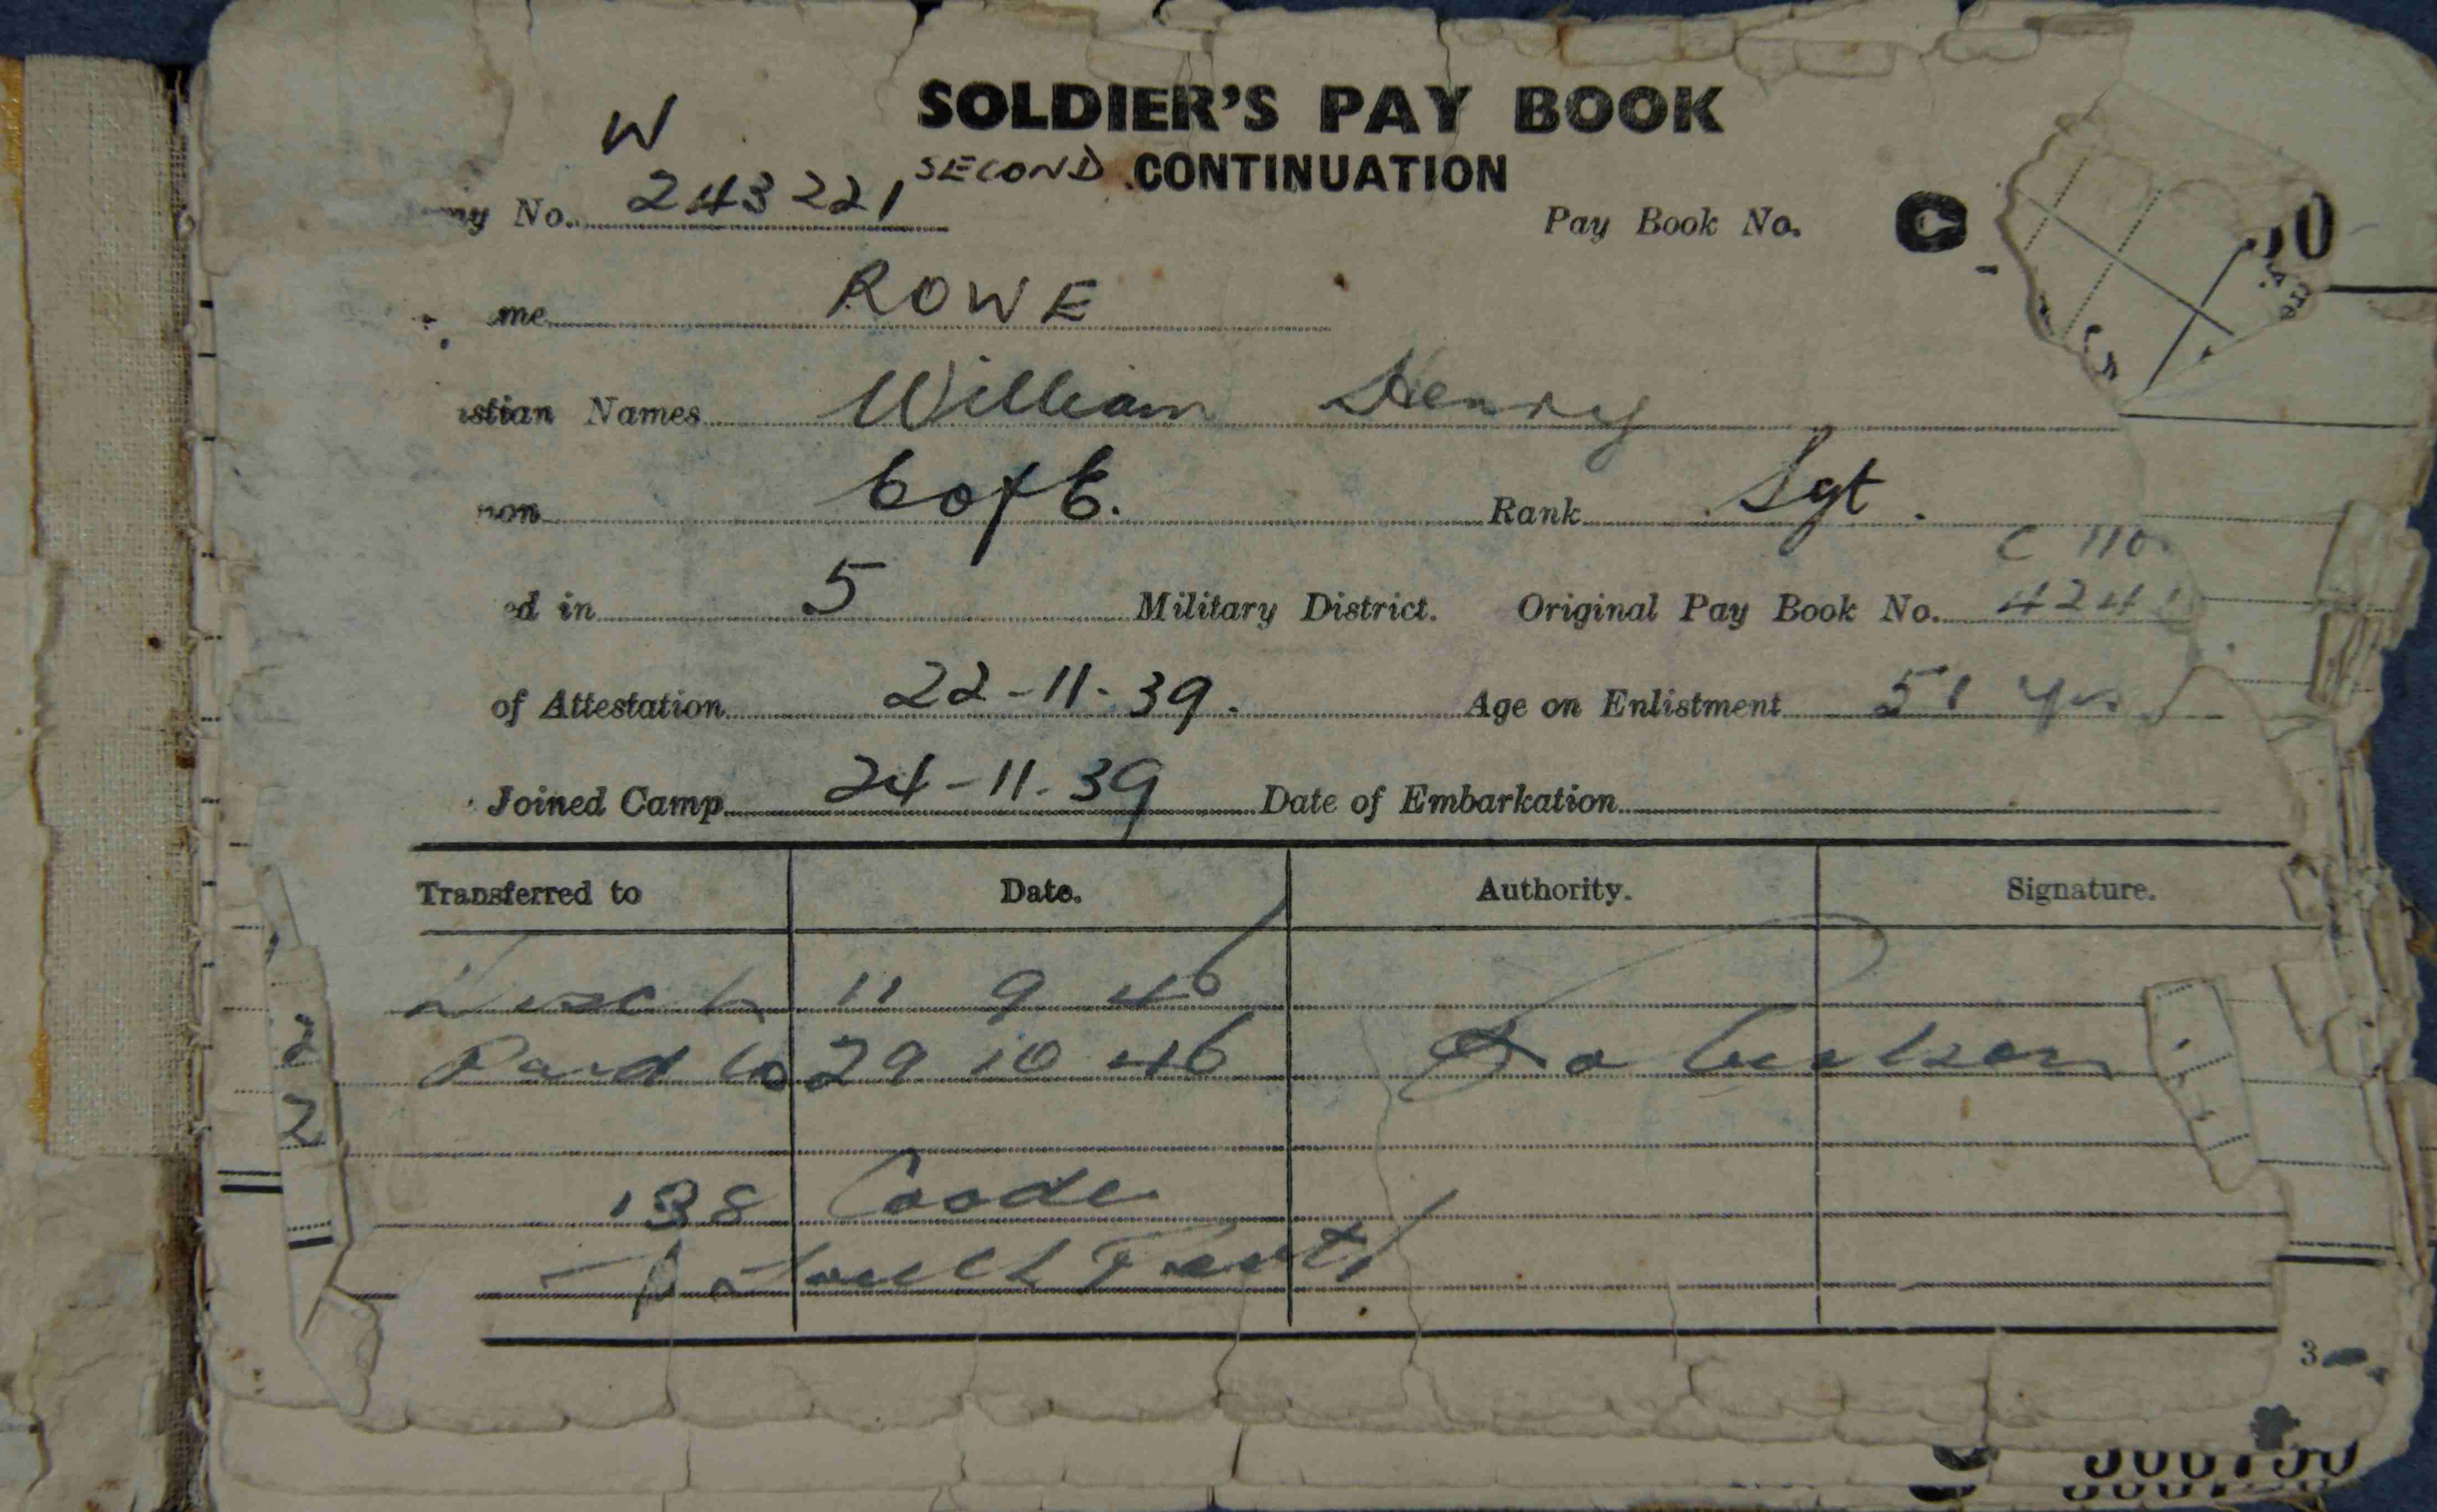 SOLDIER'S PAY BOOK
SECOND CONTINUATION
W
my No. 243221
Pay Book No. C
me ROWE
istian Names William Henry
C of E. Rank Sgt.
C 110
ed in 5 Military District. Original Pay Book No. 424
of Attestation 22-11-39. Age on Enlistment 51 yrs
Joined Camp 24-11-39 Date of Embarkation
Transferred to Date. Authority. Signature.
11 9 46
Paid to 29 10 46
138 Coode
Perth
3